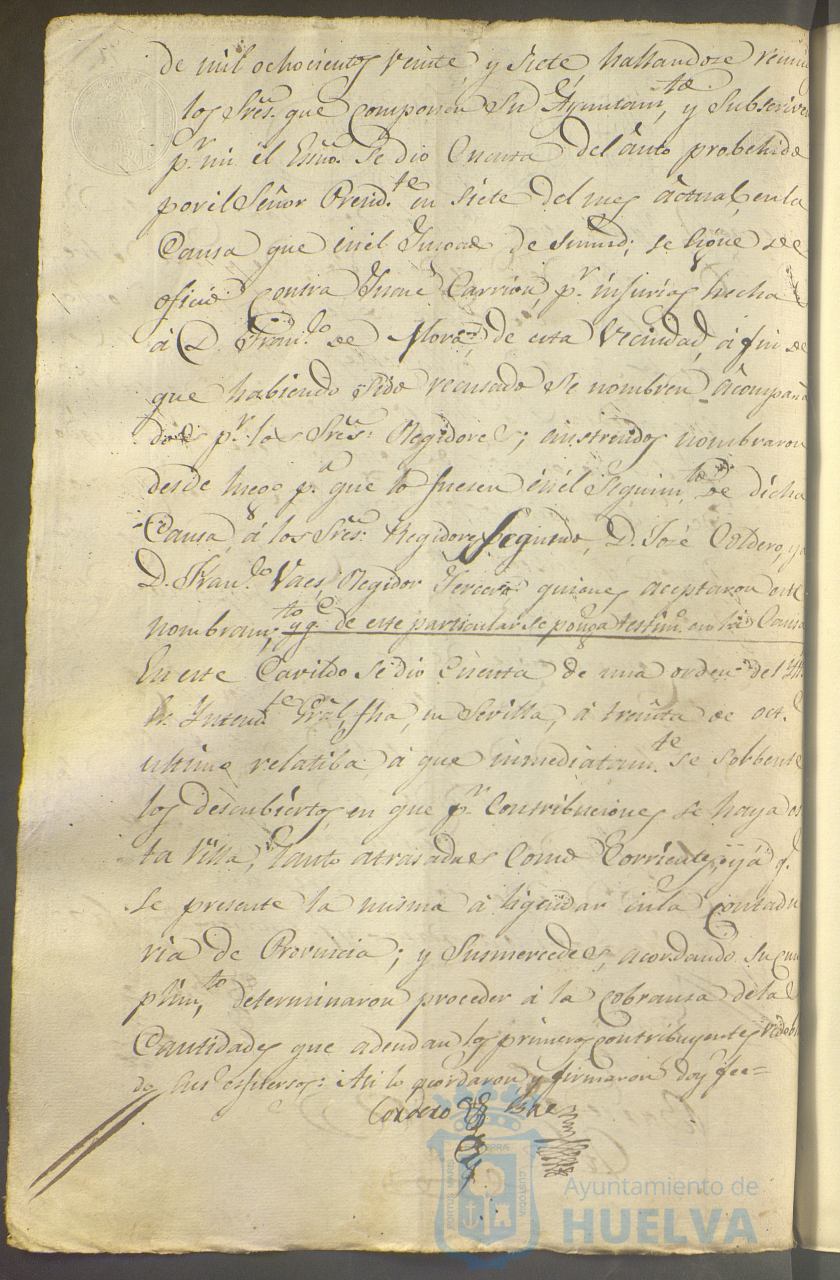 de mil ochocientos veinte y siete hallandose reuni
los Sres. que componen su Ayuntamto. y subscriven
pr. mi el Essno. Se dio Cuenta del auto probehido
por el Señor Presidte. en siete del mes actual, en la
Causa que en el se sigue de
oficio contra Carrion, pr. injurias hecha
á D. Franco. de Mora, de esta Vecindad, á fin de
que habiendo sido recusado se nombren acompaña
dos pr. los Sres. Regidores; enstruidos nombraron
desde luego pa. que lo fuesen en el Seguimto. de dicha
Causa, á los Sres. Regidores Segundo, D. José Cordero, y a
D. Franco. Vaes, Regidor Tercero quienes aceptaron este
nombramto.; y qe. de este particular se ponga testimo. en la Causa
En este Cavildo se dio Cuenta de una orden del
Sr. Intendte. Gral. fha, en Sevilla, á treinta de octe.
ultimo relatiba á que inmediatamte. se solbente
los descubiertos en que pr. Contribuciones se haya es
ta Villa, tanto atrasadas como Corrientes, y á q.
se presente la misma á liquidar en la Contadu
ria de Provincia; y Susmercedes, acordando su cum
plimto. determinaron proceder á la cobransa de las
Cantidades que adeudan los primeros contribuyentes redobla
do sus esfuersos: Asi lo acordaron y firmaron doy fee=
Cordero Vae
Ayuntamiento de
HUELVA